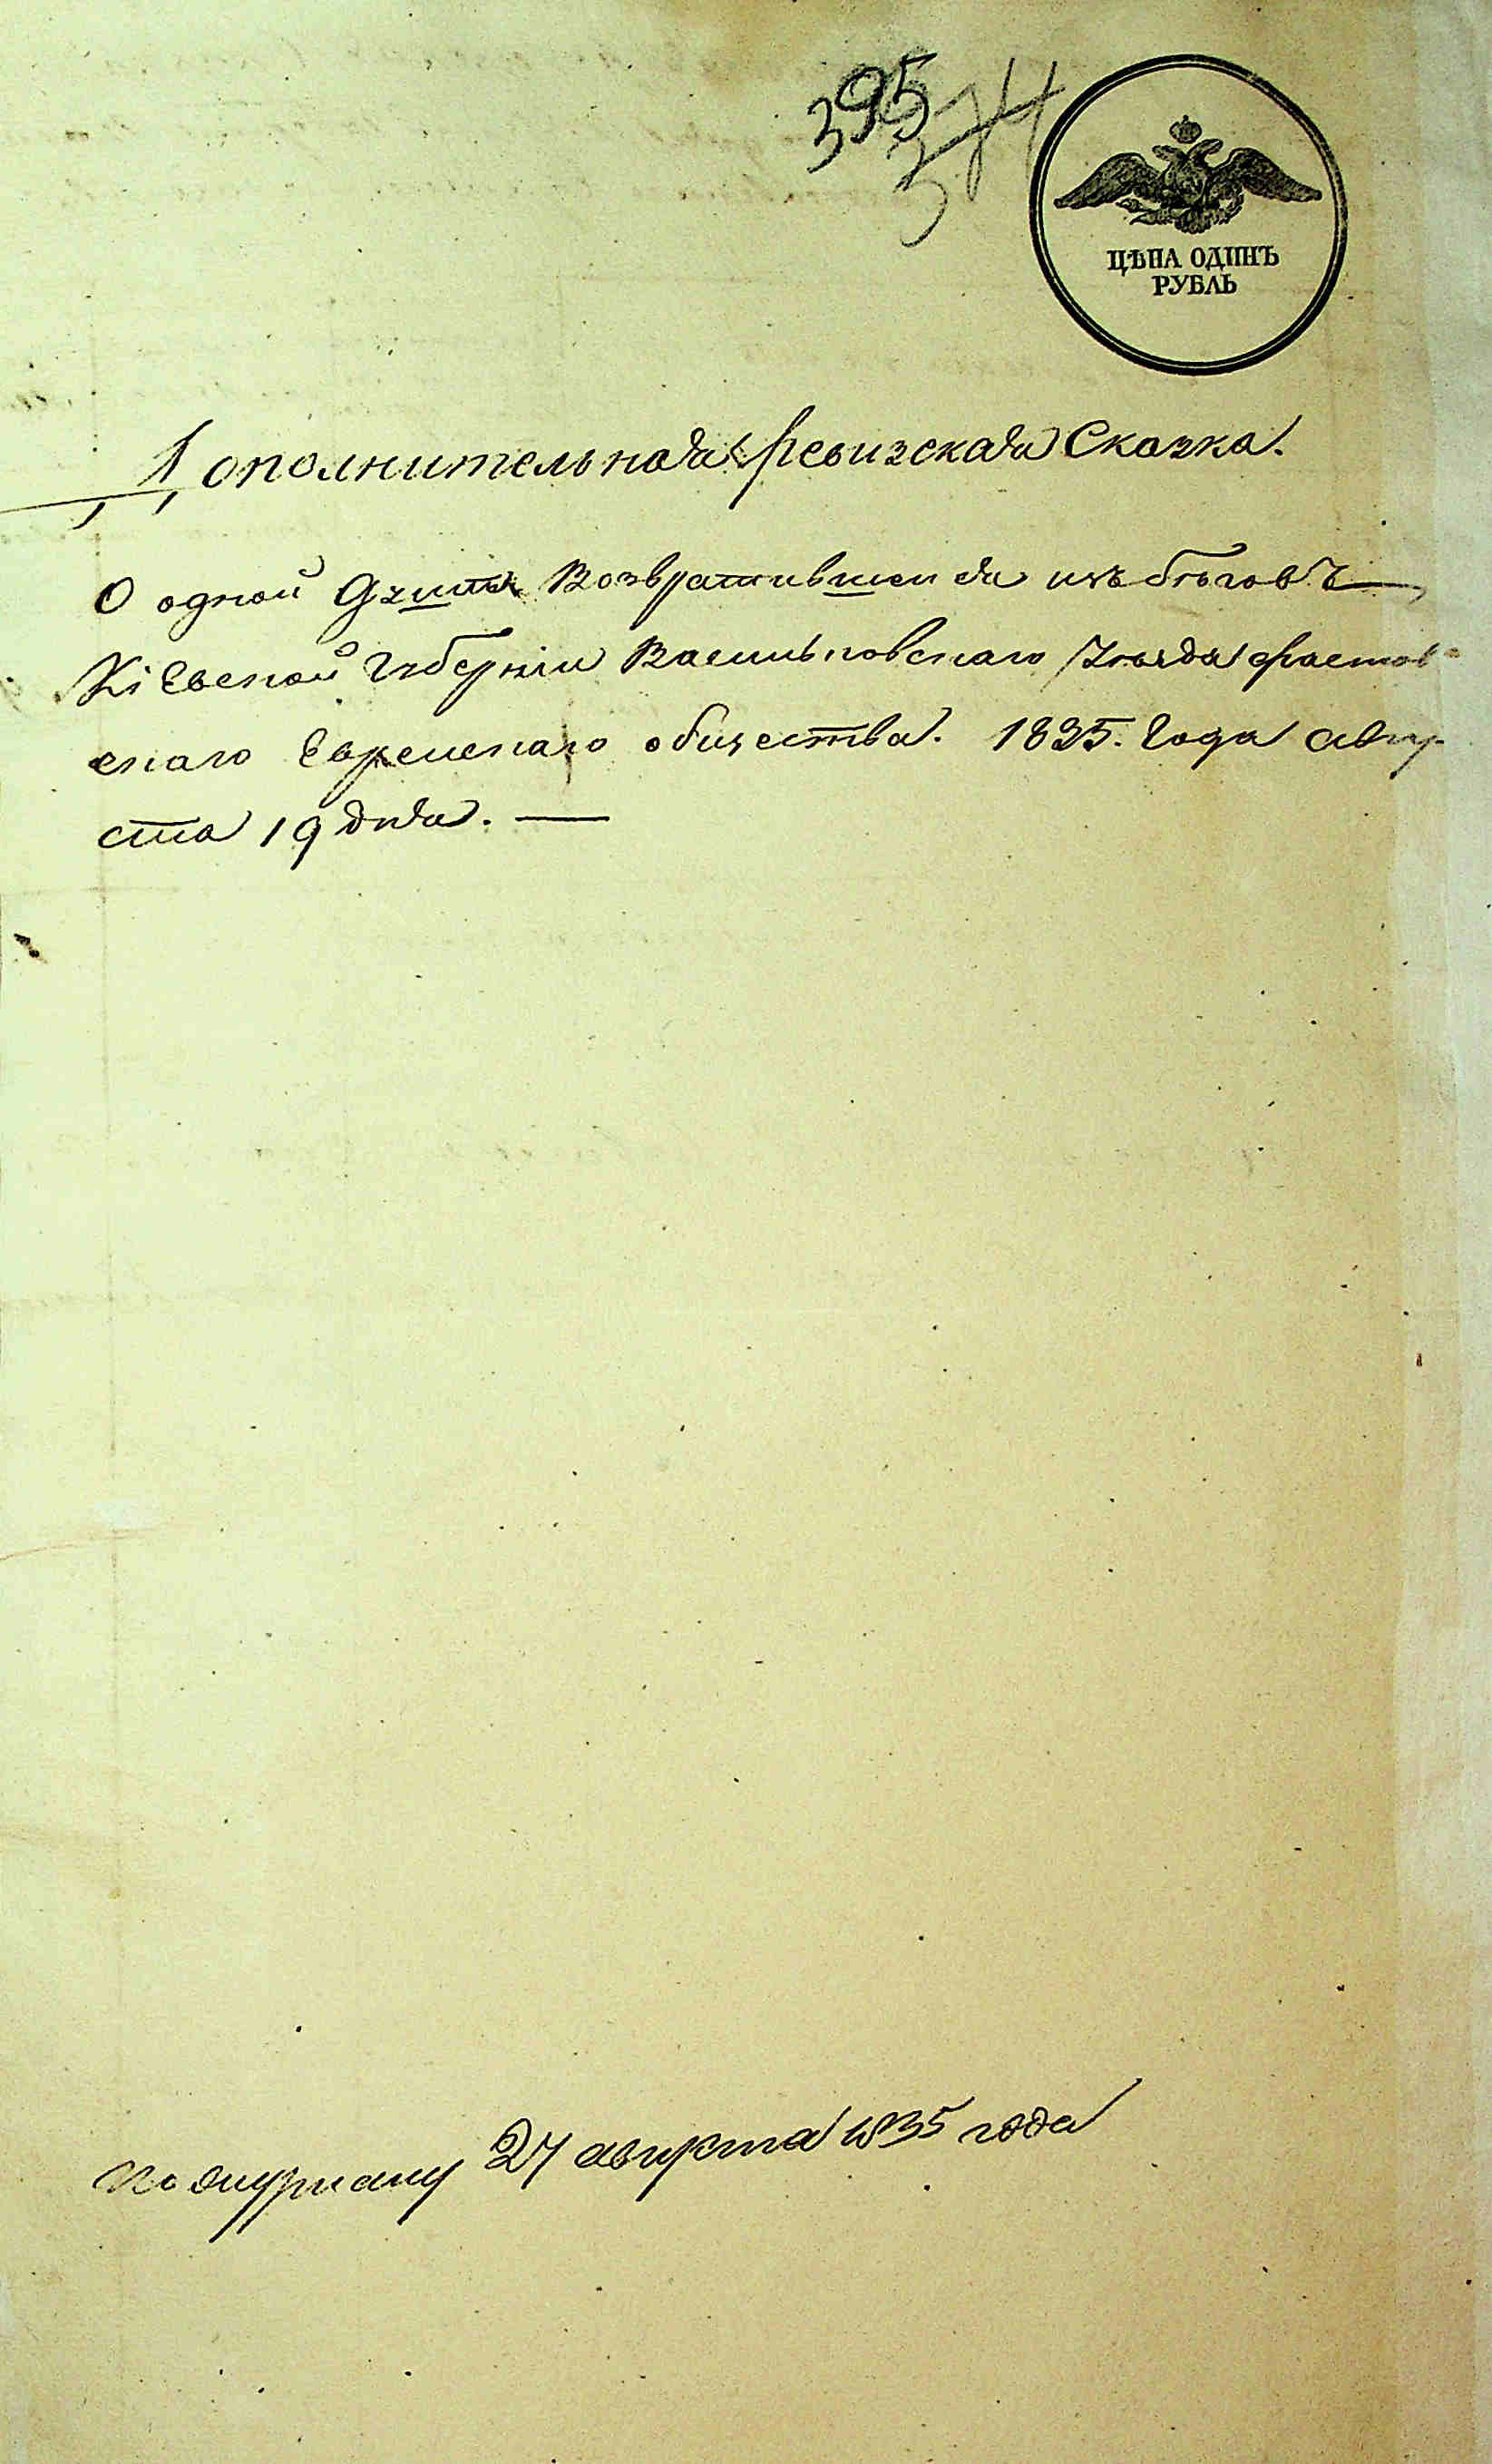 395
374
ЦѢНА ОДИНЪ
РУБЛЬ
Дополнительная Ревизская Сказка.
О одной Душѣ Возвратившей ся изъ бѣговъ
Кіевской Губерніи Васильковскаго Уѣзда Фастов
скаго Еврейскаго общества. 1835. Года авгу-
ста 19 дня. —
по журналу 27 августа 1835 года